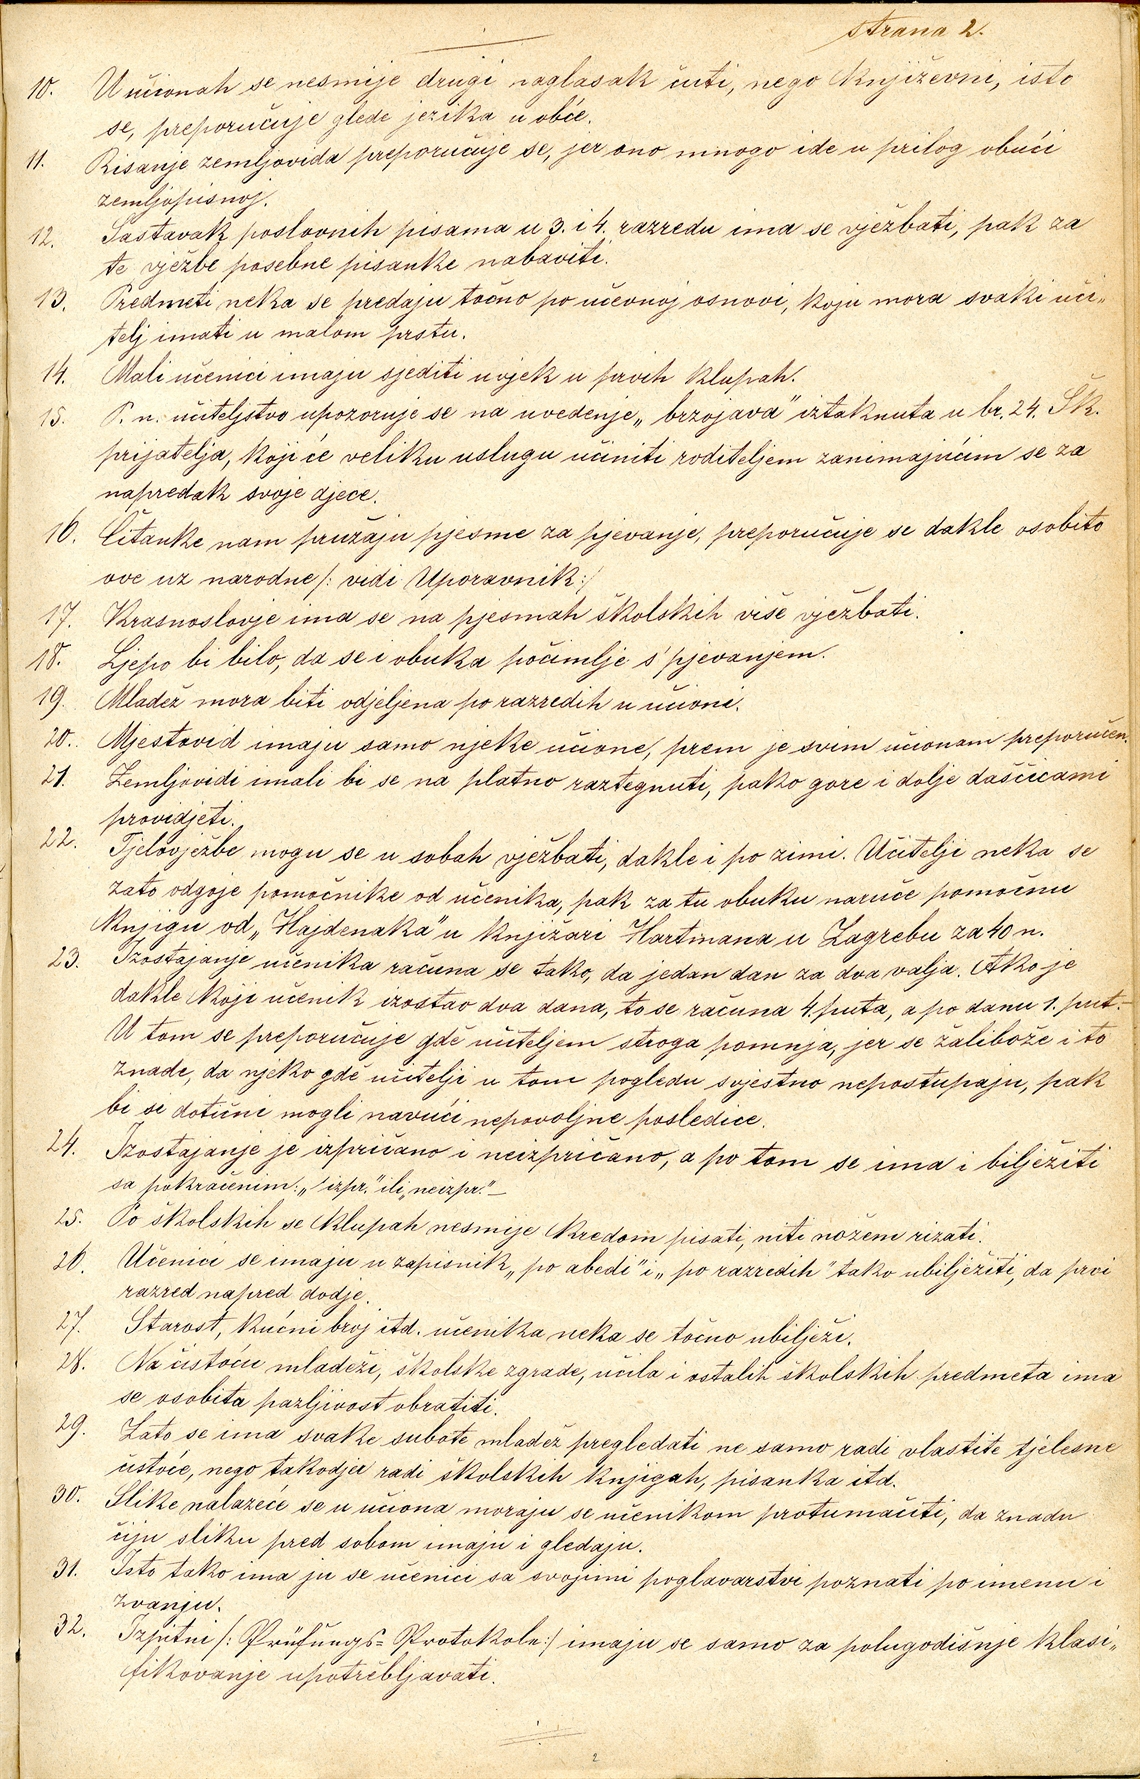 strana 2.
10. U učionah se nesmije drugi naglasak čuti, nego književni, isto
se, preporučuje glede jezika u obće.
11. Risanje zemljovida preporučuje se, jer ono mnogo ide u prilog obući
zemljopisnoj.
12. Sastavak poslovnih pisama u 3. i 4. razredu ima se vježbati, pak za
te vježbe posebne pisanke nabaviti.
13. Predmeti neka se predaju točno po učevnoj osnovi, koju mora svaki uči„
telj imati u malom prstu.
14. Mali učenici imaju sjediti uvjek u prvih klupah.
15. P. n. učiteljstvo upozoruje se na uvedenje „brzojava" iztaknuta u br. 24. Šk.
prijatelja, koji će veliku uslugu učiniti roditeljem zanimajućim se za
napredak svoje djece.
16. Čitanke nam pružaju pjesme za pjevanje, preporučuje se dakle osobito
ove uz narodne /: vidi Uporavnik :/
17. Krasnoslovje ima se na pjesmah školskih više vježbati.
18. Ljepo bi bilo, da se i obuka počimlje s' pjevanjem.
19. Mladež mora biti odjeljena po razredih u učioni.
20. Mjestovid imaju samo njeke učione, prem je svim učionam preporučen.
21. Zemljovidi imali bi se na platno raztegnuti, pako gore i dolje daščicami
providjeti.
22. Tjelovježbe mogu se u sobah vježbati, dakle i po zimi. Učitelji neka se
zato odgoje pomoćnike od učenika, pak za tu obuku naruče pomoćnu
knjigu od „Hajdenaka" u knjižari Hartmana u Zagrebu za 40 n.
23. Izostajanje učenika računa se tako, da jedan dan za dva valja. Ako je
dakle koji učenik izostao dva dana, to se računa 4. puta, a po danu 1. put.–
U tom se preporučuje gdě učiteljem stroga pomnja, jer se žalibože i to
znade, da njeko gdě učitelji u tom pogledu svjestno nepostupaju, pak
bi si dotični mogli navući nepovoljne posledice.
24. Izostajanje je izpričano i neizpričano, a po tom se ima i bilježiti
sa pokraćenim: „izpr." ili „neizpr." –
25. Po školskih se klupah nesmije kredom pisati, niti nožem rizati.
26. Učenici se imaju u zapisnik „po abedi" i „po razredih" tako ubilježiti, da prvi
razred napred dodje.
27. Starost, kućni broj itd. učenika neka se točno ubilježi.
28. Na čistoću mladeži, školske zgrade, učila i ostalih školskih predmeta ima
se osobita pazljivost obratiti.
29. Zato se ima svake subote mladež pregledati ne samo radi vlastite tjelesne
čistoće, nego takodjer radi školskih knjigah, pisanka itd.
30. Slike nalazeće se u učiona moraju se učenikom protumačiti, da znadu
čiju sliku pred sobom imaju i gledaju.
31. Isto tako imaju se učenici sa svojimi poglavarstvi poznati po imenu i
zvanju.
32. Izpitni /: Prüfungs= Protokole :/ imaju se samo za polugodišnje klasi„
fikovanje upotrebljavati.
2